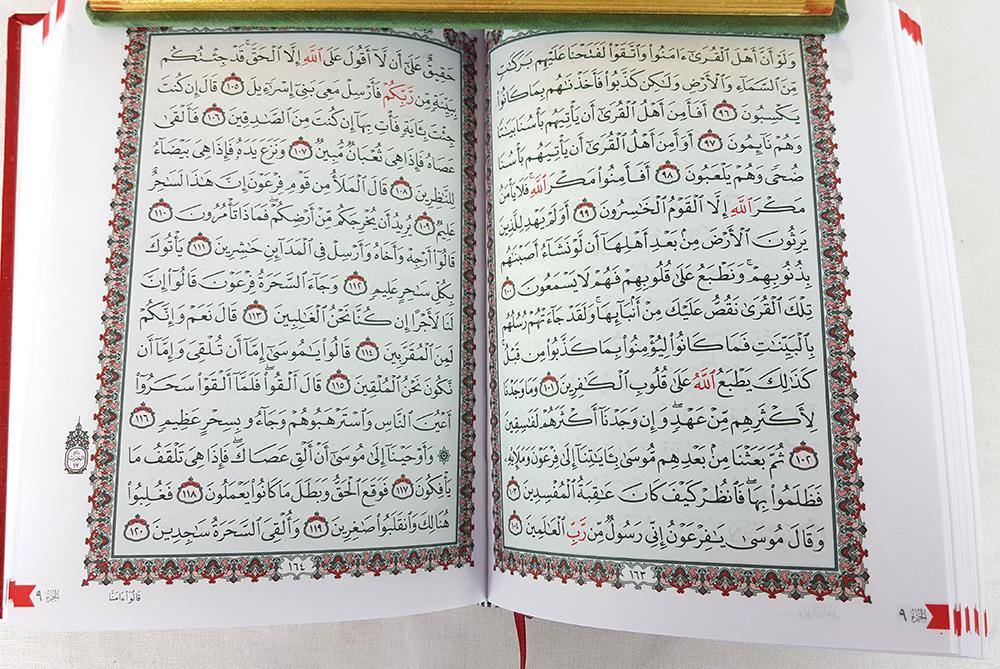 وَلَوْ أَنَّ أَهْلَ ٱلْقُرَىٰٓ ءَامَنُوا۟ وَٱتَّقَوْا۟ لَفَتَحْنَا عَلَيْهِم بَرَكَٰتٍ
مِّنَ ٱلسَّمَآءِ وَٱلْأَرْضِ وَلَٰكِن كَذَّبُوا۟ فَأَخَذْنَٰهُم بِمَا كَانُوا۟
يَكْسِبُونَ ٩٦ أَفَأَمِنَ أَهْلُ ٱلْقُرَىٰٓ أَن يَأْتِيَهُم بَأْسُنَا بَيَٰتًا
وَهُمْ نَآئِمُونَ ٩٧ أَوَأَمِنَ أَهْلُ ٱلْقُرَىٰٓ أَن يَأْتِيَهُم بَأْسُنَا
ضُحًى وَهُمْ يَلْعَبُونَ ٩٨ أَفَأَمِنُوا۟ مَكْرَ ٱللَّهِ فَلَا يَأْمَنُ
مَكْرَ ٱللَّهِ إِلَّا ٱلْقَوْمُ ٱلْخَٰسِرُونَ ٩٩ أَوَلَمْ يَهْدِ لِلَّذِينَ
يَرِثُونَ ٱلْأَرْضَ مِنۢ بَعْدِ أَهْلِهَآ أَن لَّوْ نَشَآءُ أَصَبْنَٰهُم
بِذُنُوبِهِمْ وَنَطْبَعُ عَلَىٰ قُلُوبِهِمْ فَهُمْ لَا يَسْمَعُونَ ١٠٠
تِلْكَ ٱلْقُرَىٰ نَقُصُّ عَلَيْكَ مِنْ أَنۢبَآئِهَا وَلَقَدْ جَآءَتْهُمْ رُسُلُهُم
بِٱلْبَيِّنَٰتِ فَمَا كَانُوا۟ لِيُؤْمِنُوا۟ بِمَا كَذَّبُوا۟ مِن قَبْلُ
كَذَٰلِكَ يَطْبَعُ ٱللَّهُ عَلَىٰ قُلُوبِ ٱلْكَٰفِرِينَ ١٠١ وَمَا وَجَدْنَا
لِأَكْثَرِهِم مِّنْ عَهْدٍ وَإِن وَجَدْنَآ أَكْثَرَهُمْ لَفَٰسِقِينَ
١٠٢ ثُمَّ بَعَثْنَا مِنۢ بَعْدِهِم مُّوسَىٰ بِـَٔايَٰتِنَآ إِلَىٰ فِرْعَوْنَ وَمَلَإِي۟هِ
فَظَلَمُوا۟ بِهَا فَٱنظُرْ كَيْفَ كَانَ عَٰقِبَةُ ٱلْمُفْسِدِينَ ١٠٣
وَقَالَ مُوسَىٰ يَٰفِرْعَوْنُ إِنِّى رَسُولٌ مِّن رَّبِّ ٱلْعَٰلَمِينَ ١٠٤
١٦٣
الجزء ٩
حَقِيقٌ عَلَىٰٓ أَن لَّآ أَقُولَ عَلَى ٱللَّهِ إِلَّا ٱلْحَقَّ قَدْ جِئْتُكُم
بِبَيِّنَةٍ مِّن رَّبِّكُمْ فَأَرْسِلْ مَعِىَ بَنِىٓ إِسْرَٰٓءِيلَ ١٠٥ قَالَ إِن كُنتَ
جِئْتَ بِـَٔايَةٍ فَأْتِ بِهَآ إِن كُنتَ مِنَ ٱلصَّٰدِقِينَ ١٠٦ فَأَلْقَىٰ
عَصَاهُ فَإِذَا هِىَ ثُعْبَانٌ مُّبِينٌ ١٠٧ وَنَزَعَ يَدَهُۥ فَإِذَا هِىَ بَيْضَآءُ
لِلنَّٰظِرِينَ ١٠٨ قَالَ ٱلْمَلَأُ مِن قَوْمِ فِرْعَوْنَ إِنَّ هَٰذَا لَسَٰحِرٌ
عَلِيمٌ ١٠٩ يُرِيدُ أَن يُخْرِجَكُم مِّنْ أَرْضِكُمْ فَمَاذَا تَأْمُرُونَ ١١٠
قَالُوٓا۟ أَرْجِهْ وَأَخَاهُ وَأَرْسِلْ فِى ٱلْمَدَآئِنِ حَٰشِرِينَ ١١١ يَأْتُوكَ
بِكُلِّ سَٰحِرٍ عَلِيمٍ ١١٢ وَجَآءَ ٱلسَّحَرَةُ فِرْعَوْنَ قَالُوٓا۟ إِنَّ
لَنَا لَأَجْرًا إِن كُنَّا نَحْنُ ٱلْغَٰلِبِينَ ١١٣ قَالَ نَعَمْ وَإِنَّكُمْ
لَمِنَ ٱلْمُقَرَّبِينَ ١١٤ قَالُوا۟ يَٰمُوسَىٰٓ إِمَّآ أَن تُلْقِىَ وَإِمَّآ أَن
نَّكُونَ نَحْنُ ٱلْمُلْقِينَ ١١٥ قَالَ أَلْقُوا۟ فَلَمَّآ أَلْقَوْا۟ سَحَرُوٓا۟
أَعْيُنَ ٱلنَّاسِ وَٱسْتَرْهَبُوهُمْ وَجَآءُو بِسِحْرٍ عَظِيمٍ ١١٦
۞ وَأَوْحَيْنَآ إِلَىٰ مُوسَىٰٓ أَنْ أَلْقِ عَصَاكَ فَإِذَا هِىَ تَلْقَفُ مَا
يَأْفِكُونَ ١١٧ فَوَقَعَ ٱلْحَقُّ وَبَطَلَ مَا كَانُوا۟ يَعْمَلُونَ ١١٨ فَغُلِبُوا۟
هُنَالِكَ وَٱنقَلَبُوا۟ صَٰغِرِينَ ١١٩ وَأُلْقِىَ ٱلسَّحَرَةُ سَٰجِدِينَ ١٢٠
١٦٤
قَالُوٓا۟ ءَامَنَّا
الجزء ٩